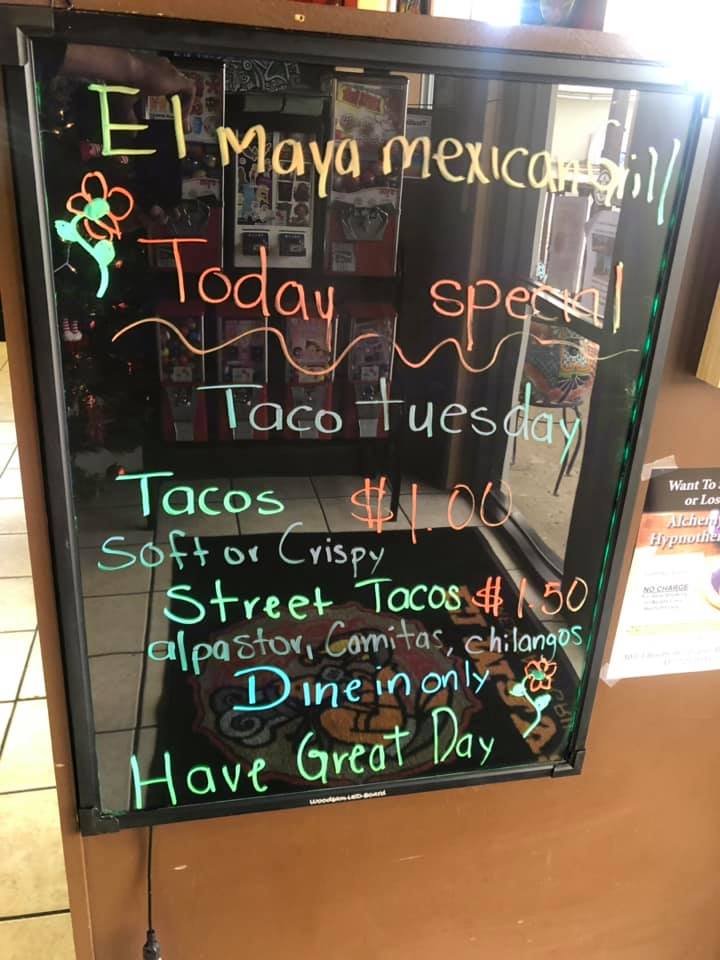 El Maya mexican Grill
Today special
Taco tuesday
Tacos $1.00
Soft or Crispy
Street Tacos $1.50
alpastor, Carnitas, chilangos
Dine in only
Have Great Day
Woodsam LED-Board
Want To
or Los
Alchem
Hypnothe
NO CHARGE